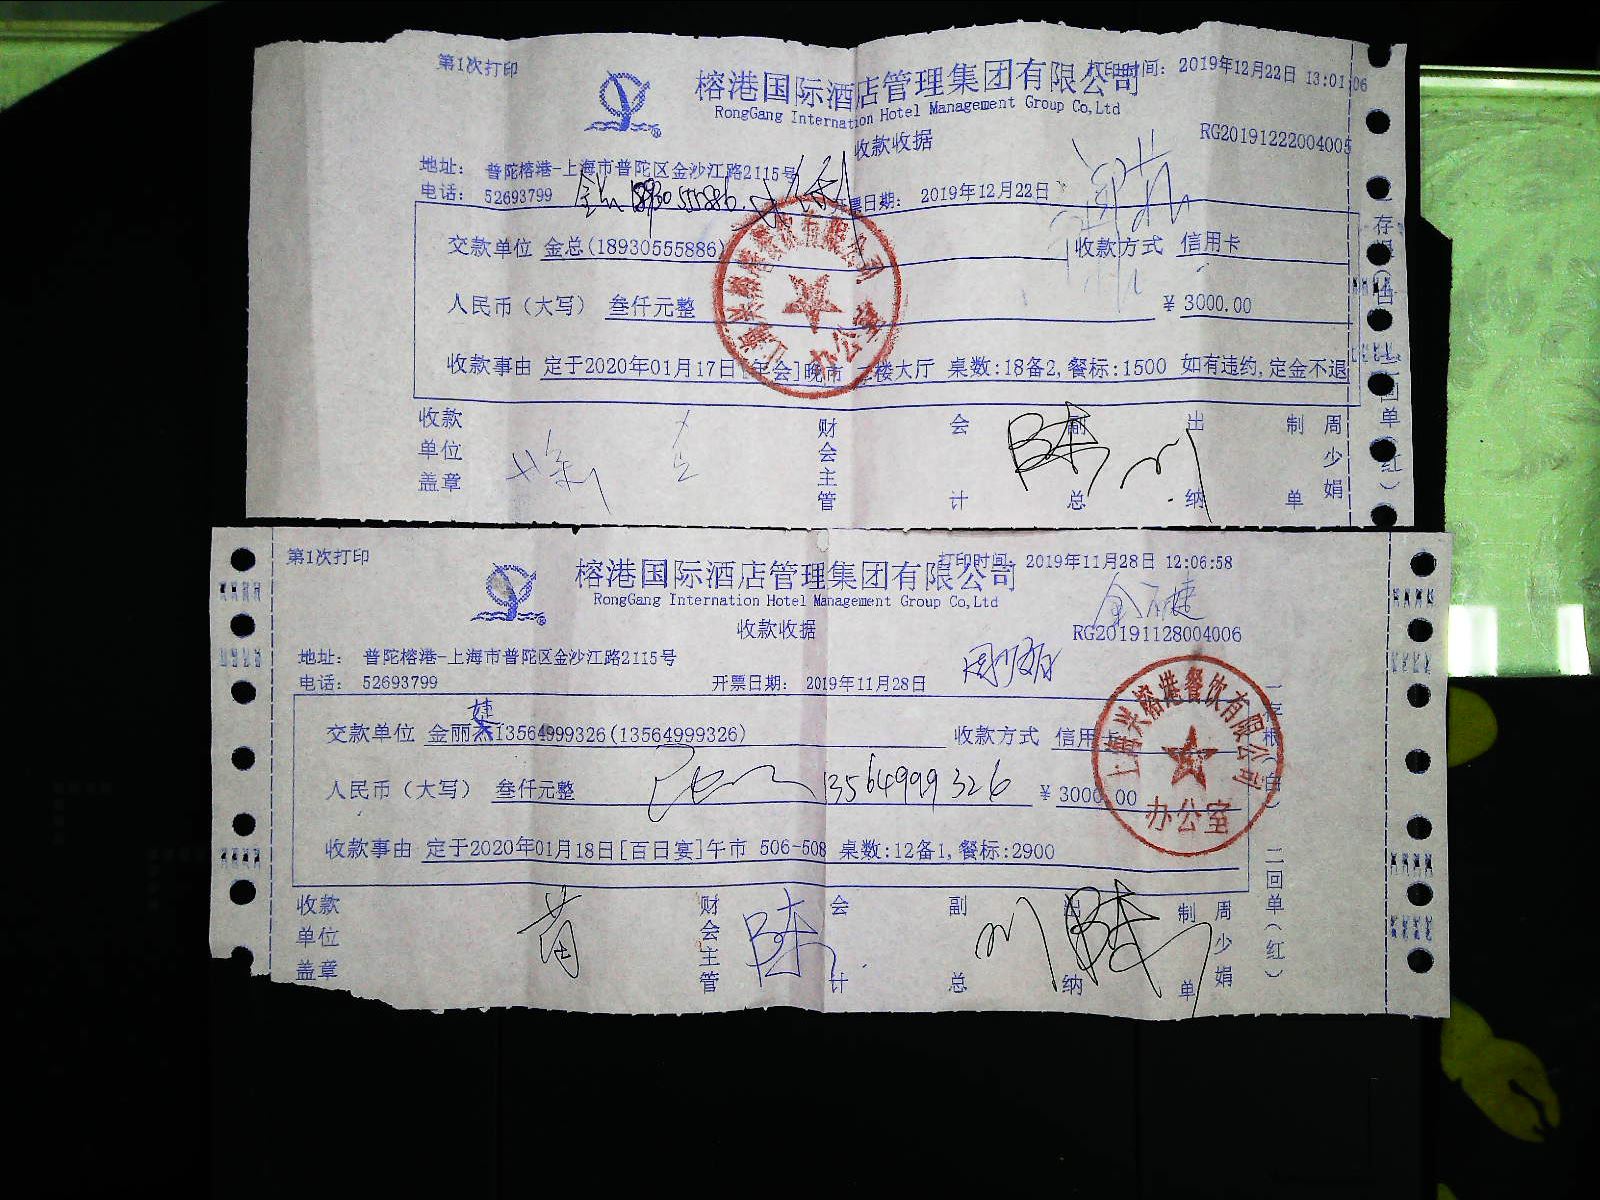 第1次打印
打印时间: 2019年12月22日 13:01:06
榕港国际酒店管理集团有限公司
RongGang Internation Hotel Management Group Co,Ltd
收款收据
RG20191222004005
地址: 普陀榕港-上海市普陀区金沙江路2115号
电话: 52693799
18930555886
开票日期: 2019年12月22日
交款单位 金总(18930555886)
收款方式 信用卡
人民币(大写) 叁仟元整
¥ 3000.00
收款事由 定于2020年01月17日[年会]晚市 二楼大厅 桌数:18备2,餐标:1500 如有违约,定金不退
收款单位盖章
财会主管
会计
副总
出纳
制单
周少娟
一存根(白)
二回单(红)
办公室
第1次打印
打印时间: 2019年11月28日 12:06:58
榕港国际酒店管理集团有限公司
RongGang Internation Hotel Management Group Co,Ltd
收款收据
RG20191128004006
地址: 普陀榕港-上海市普陀区金沙江路2115号
电话: 52693799
开票日期: 2019年11月28日
婕
交款单位 金丽杰13564999326(13564999326)
收款方式 信用卡
人民币(大写) 叁仟元整
13564999326
¥ 3000.00
收款事由 定于2020年01月18日[百日宴]午市 506-508 桌数:12备1,餐标:2900
上海兴榕港餐饮有限公司
办公室
收款单位盖章
财会主管
会计
副总
出纳
制单
周少娟
一存根(白)
二回单(红)